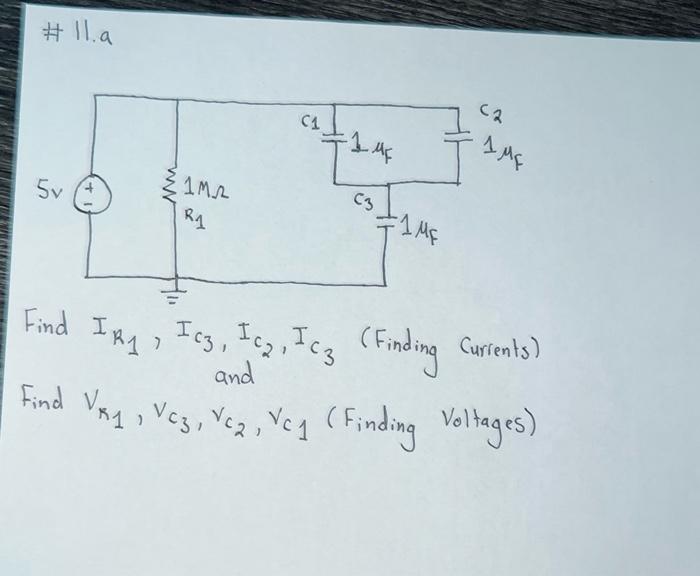 # 11.a
C1
1 µF
C2
1 µF
5v
+
-
1MΩ
R1
C3
1 µF
Find IR1, IC3, IC2, IC3 (Finding Currents)
and
Find VR1, VC3, VC2, VC1 (Finding Voltages)